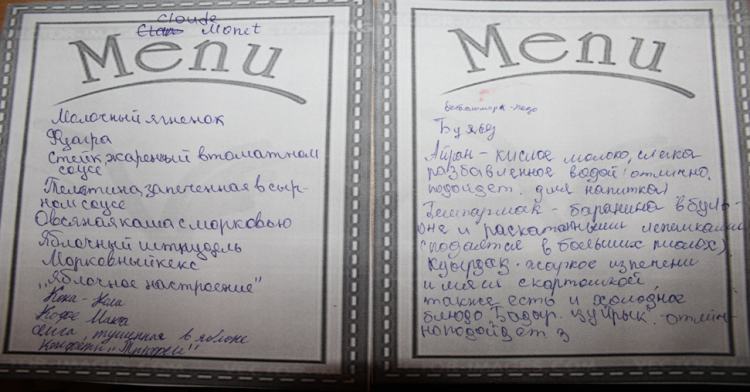 Cloude
Monet
Menu
Молочный ягненок
Фуагра
Стейк жаренный в томатном
соусе
Телятина запеченная в сыр-
ном соусе
Овсяная каша с морковью
Яблочный штрудель
Морковный кекс
„Яблочное настроение"
Кока-Кола
Кофе Мокка
тушенная в яблоке
Конфеты „Трюфели"
Menu
Айран - кислое молоко, слегка
разбавленное водой (отлично
подойдет для напитка)
Бешпармак - баранина в буль-
оне и раскатанными лепешками
(подается в больших
Куырдак - жаркое из печени
и мяса с картошкой,
также есть и холодное
блюдо отлич-
но подойдет з